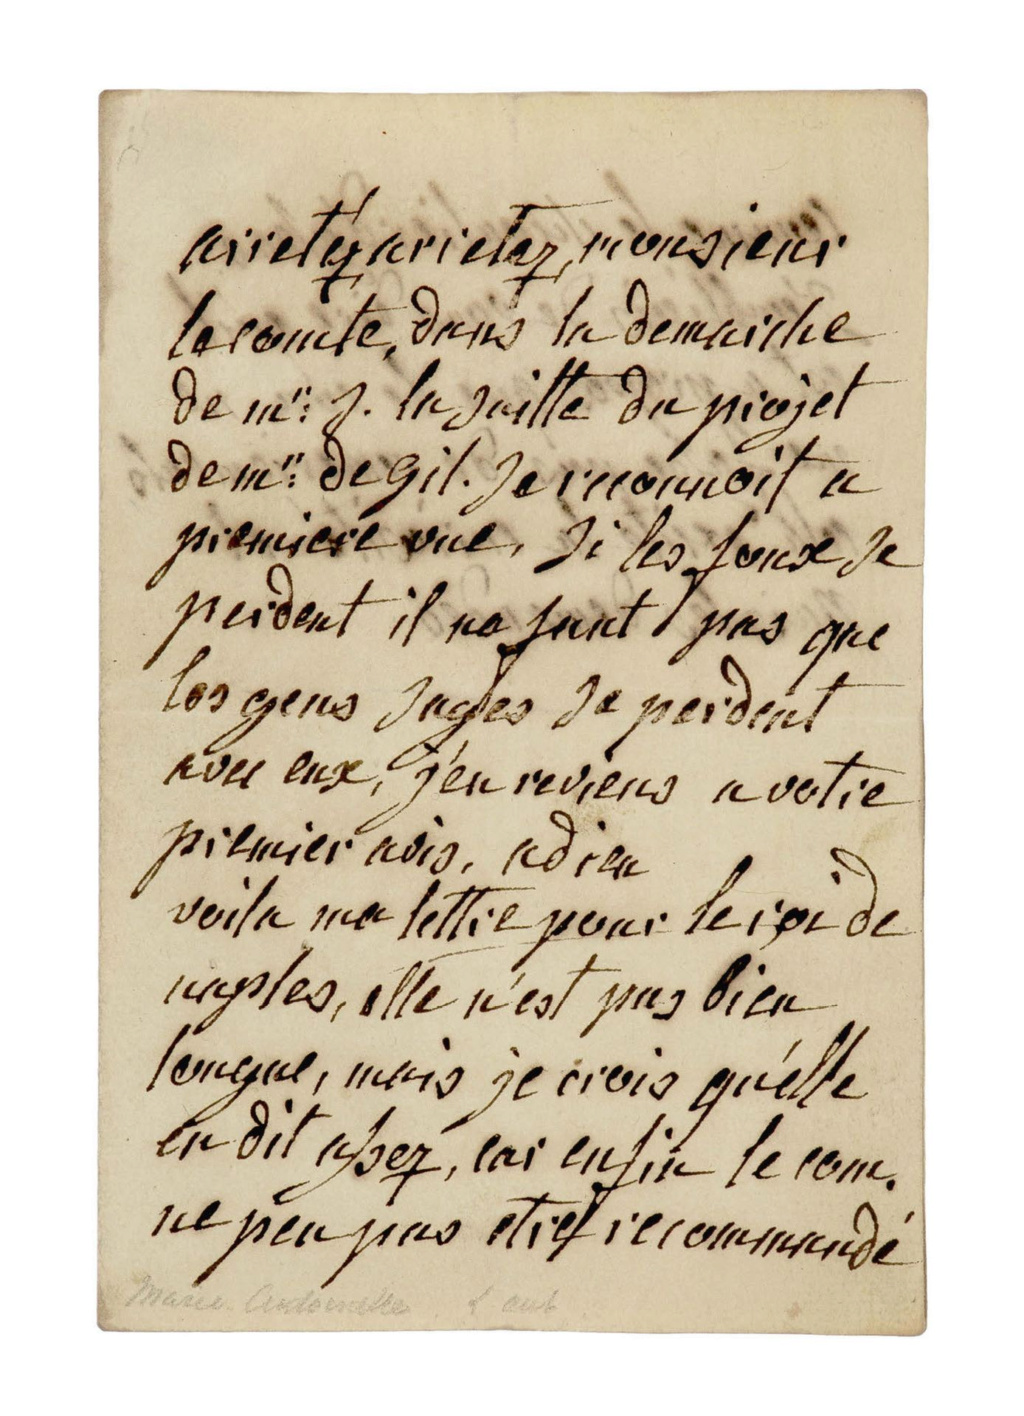 arretéz arretez, monsieur
le comte, dans la demarche
de mr: S. la suitte du projet
de mr: de Gil. Je reconnoit a
premiere vue, Si les foux se
perdent il ne faut pas que
les gens sages se perdent
avec eux, j'en reviens a votre
premier avis, adieu
voila ma lettre pour le roi de
naples, elle n'est pas bien
longue, mais je crois qu'elle
en dit assez, car enfin le com.
ne peu pas etre recommandé
Marie Antoinette